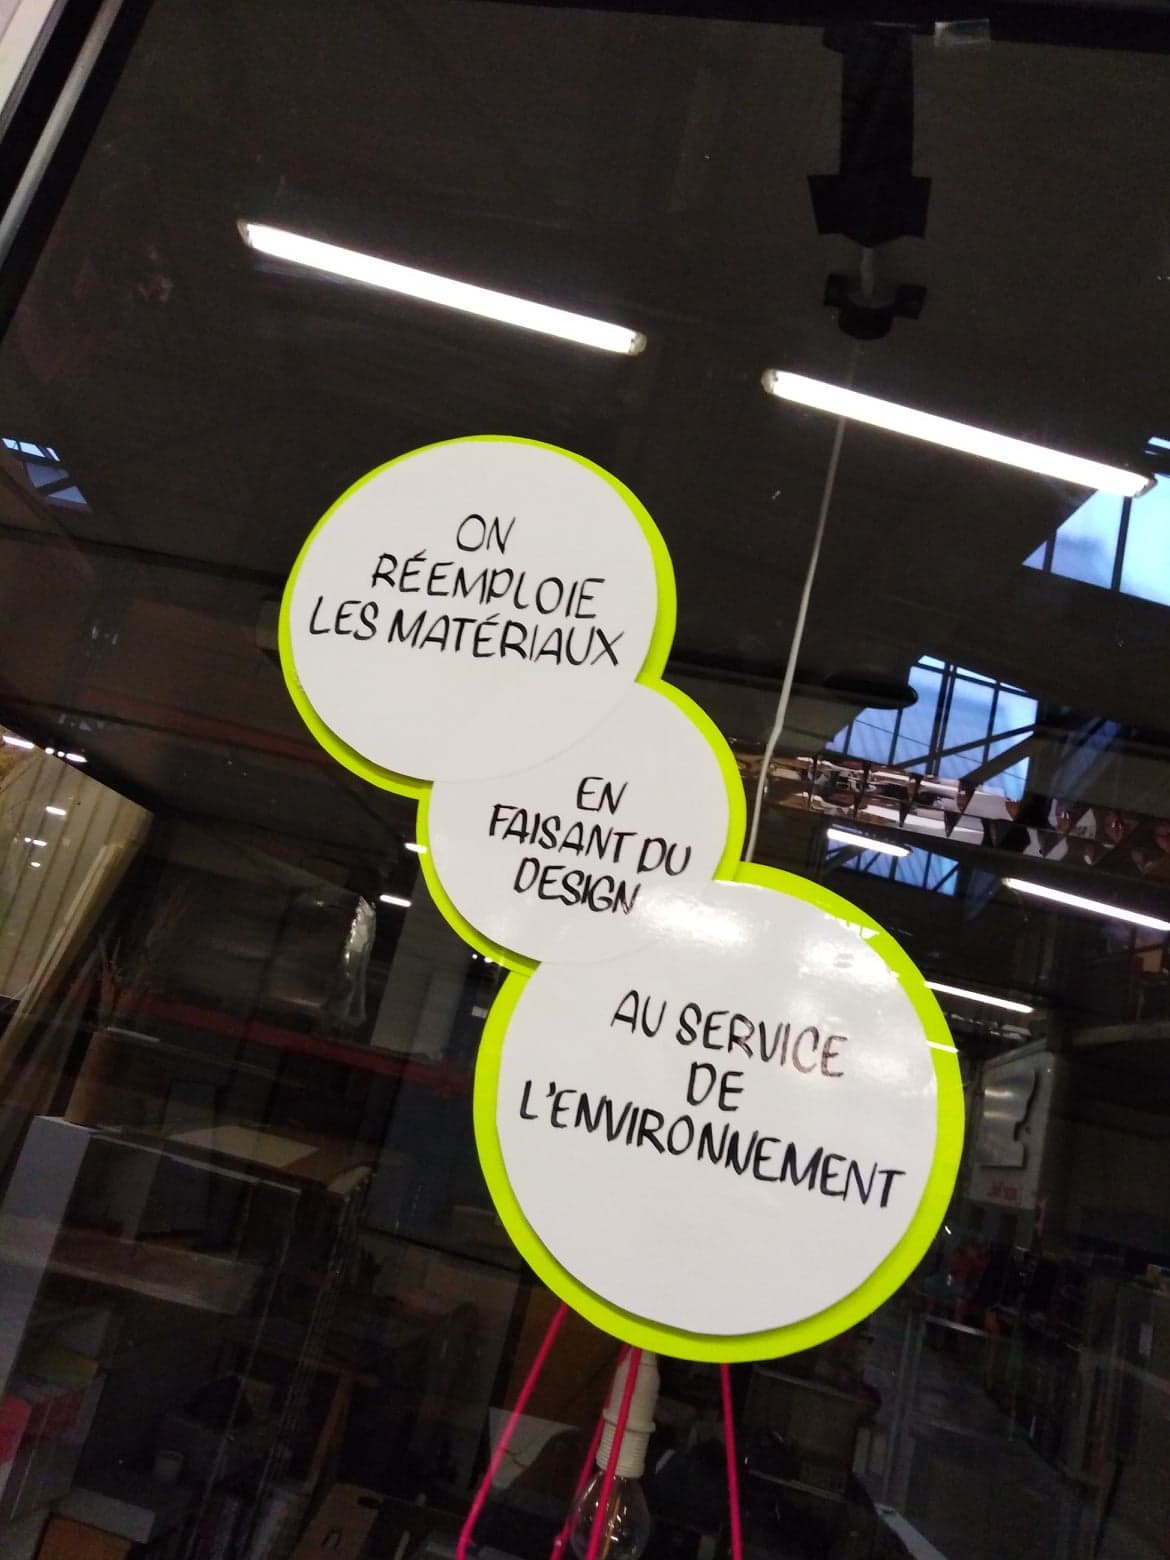 ON
RÉEMPLOIE
LES MATÉRIAUX
EN
FAISANT DU
DESIGN
AU SERVICE
DE
L'ENVIRONNEMENT